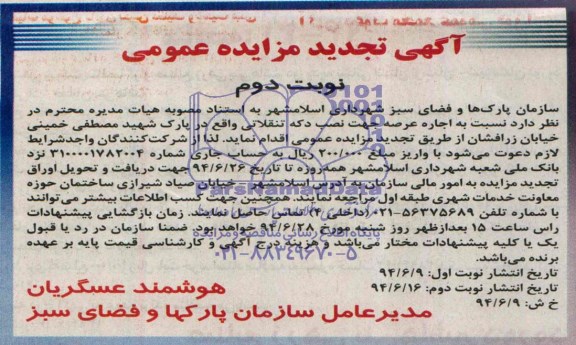 آگهی تجدید مزایده عمومی
نوبت دوم
سازمان پارک‌ها و فضای سبز شهرداری اسلامشهر به استناد مصوبه هیات مدیره محترم در
نظر دارد نسبت به اجاره عرصه جهت نصب دکه تنقلاتی واقع در پارک شهید مصطفی خمینی
خیابان زرافشان از طریق تجدید مزایده عمومی اقدام نماید. لذا از شرکت‌کنندگان واجدشرایط
لازم دعوت می‌شود با واریز مبلغ ریال به حساب جاری شماره ۳۱۰۰۰۰۱۷۸۲۰۰۴ نزد
بانک ملی شعبه شهرداری اسلامشهر همه‌روزه تا تاریخ ۹۴/۶/۲۶ جهت دریافت و تحویل اوراق
تجدید مزایده به امور مالی سازمان واقع در اسلامشهر - خیابان صیاد شیرازی ساختمان حوزه
معاونت خدمات شهری طبقه اول مراجعه نمایند. همچنین جهت کسب اطلاعات بیشتر می‌توانند
با شماره تلفن ۵۶۳۷۵۶۸۹-۰۲۱ (داخلی ۴) تماس حاصل نمایند. زمان بازگشایی پیشنهادات
راس ساعت ۱۵ بعدازظهر روز شنبه مورخ ۹۴/۶/۲۸ خواهد بود. ضمنا سازمان در رد یا قبول
یک یا کلیه پیشنهادات مختار می‌باشد و هزینه درج آگهی و کارشناسی قیمت پایه بر عهده
برنده می‌باشد.
تاریخ انتشار نوبت اول: ۹۴/۶/۹
تاریخ انتشار نوبت دوم: ۹۴/۶/۱۶
خ ش: ۹۴/۶/۹
هوشمند عسگریان
مدیرعامل سازمان پارکها و فضای سبز
۰۲۱-۸۸۳۴۹۶۷۰-۵